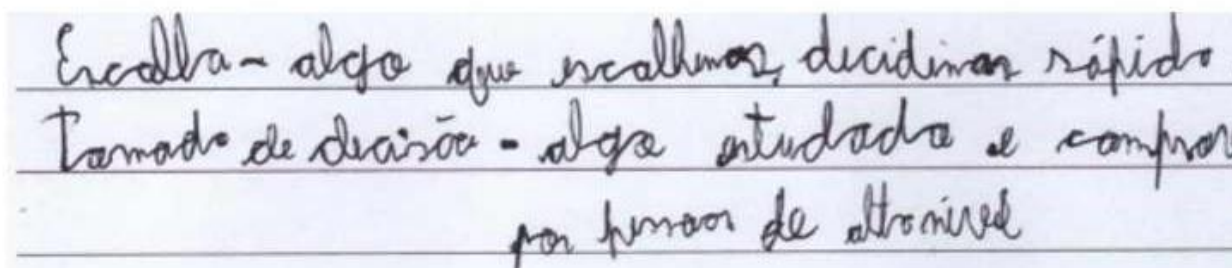 Escolha - algo que escolhemos, decidimos rápido
Tomada de decisão - algo estudado e compro
por pessoas de alto nível